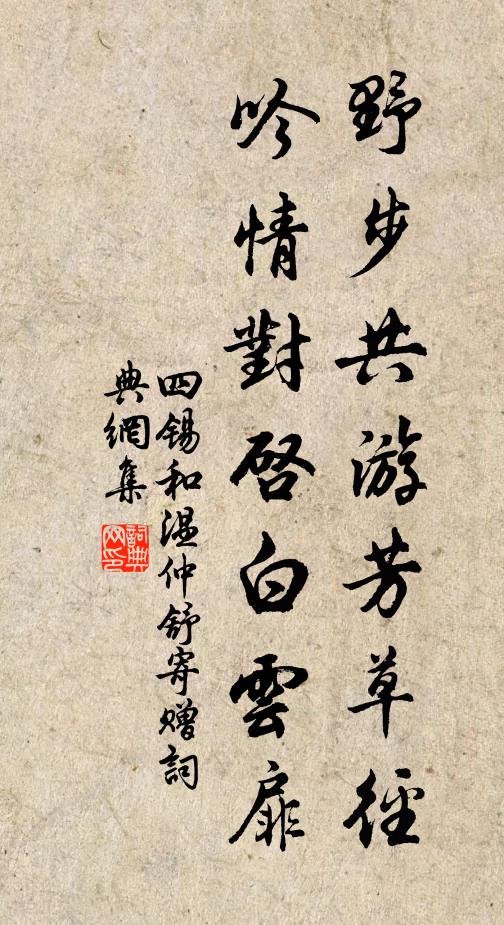 野步共游芳草徑
吟情對啓白雲扉
四錫和溫仲舒寄贈詞
典網集
詞典
网印